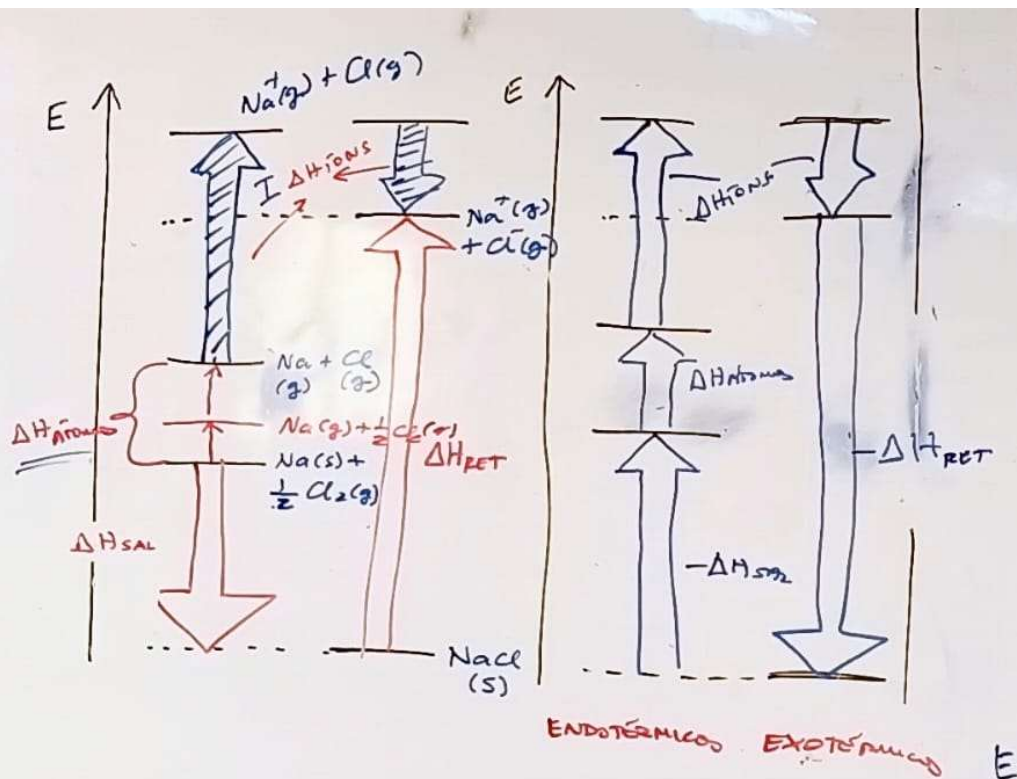 E
Na⁺(g) + Cl(g)
I ΔHÍONS
Na⁺(g)
+ Cl⁻(g)
Na + Cl
(g) (g)
ΔHÁTOMOS
Na(g) + ½ Cl₂(g)
Na(s) +
½ Cl₂(g)
ΔHRET
ΔHSAL
NaCl
(S)
E
ΔHÍONS
ΔHÁTOMOS
-ΔHSAL
-ΔHRET
ENDOTÉRMICOS EXOTÉRMICOS
E